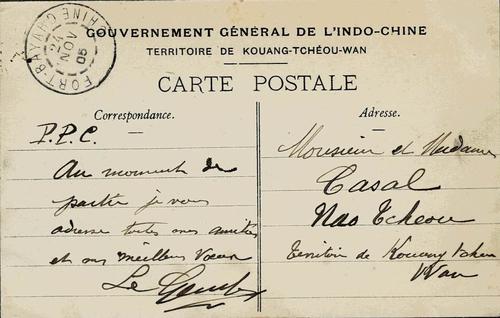 GOUVERNEMENT GÉNÉRAL DE L'INDO-CHINE
TERRITOIRE DE KOUANG-TCHÉOU-WAN
CARTE POSTALE
FORT-BAYARD CHINE
24
NOV
05
Correspondance.
P.P.C.
Au moment de
partir je vous
adresse toutes mes amitiés
et mes meilleurs vœux
Le
Adresse.
Monsieur et Madame
Casal
Nao Tcheou
Territoire de Kouang Tcheou
Wan